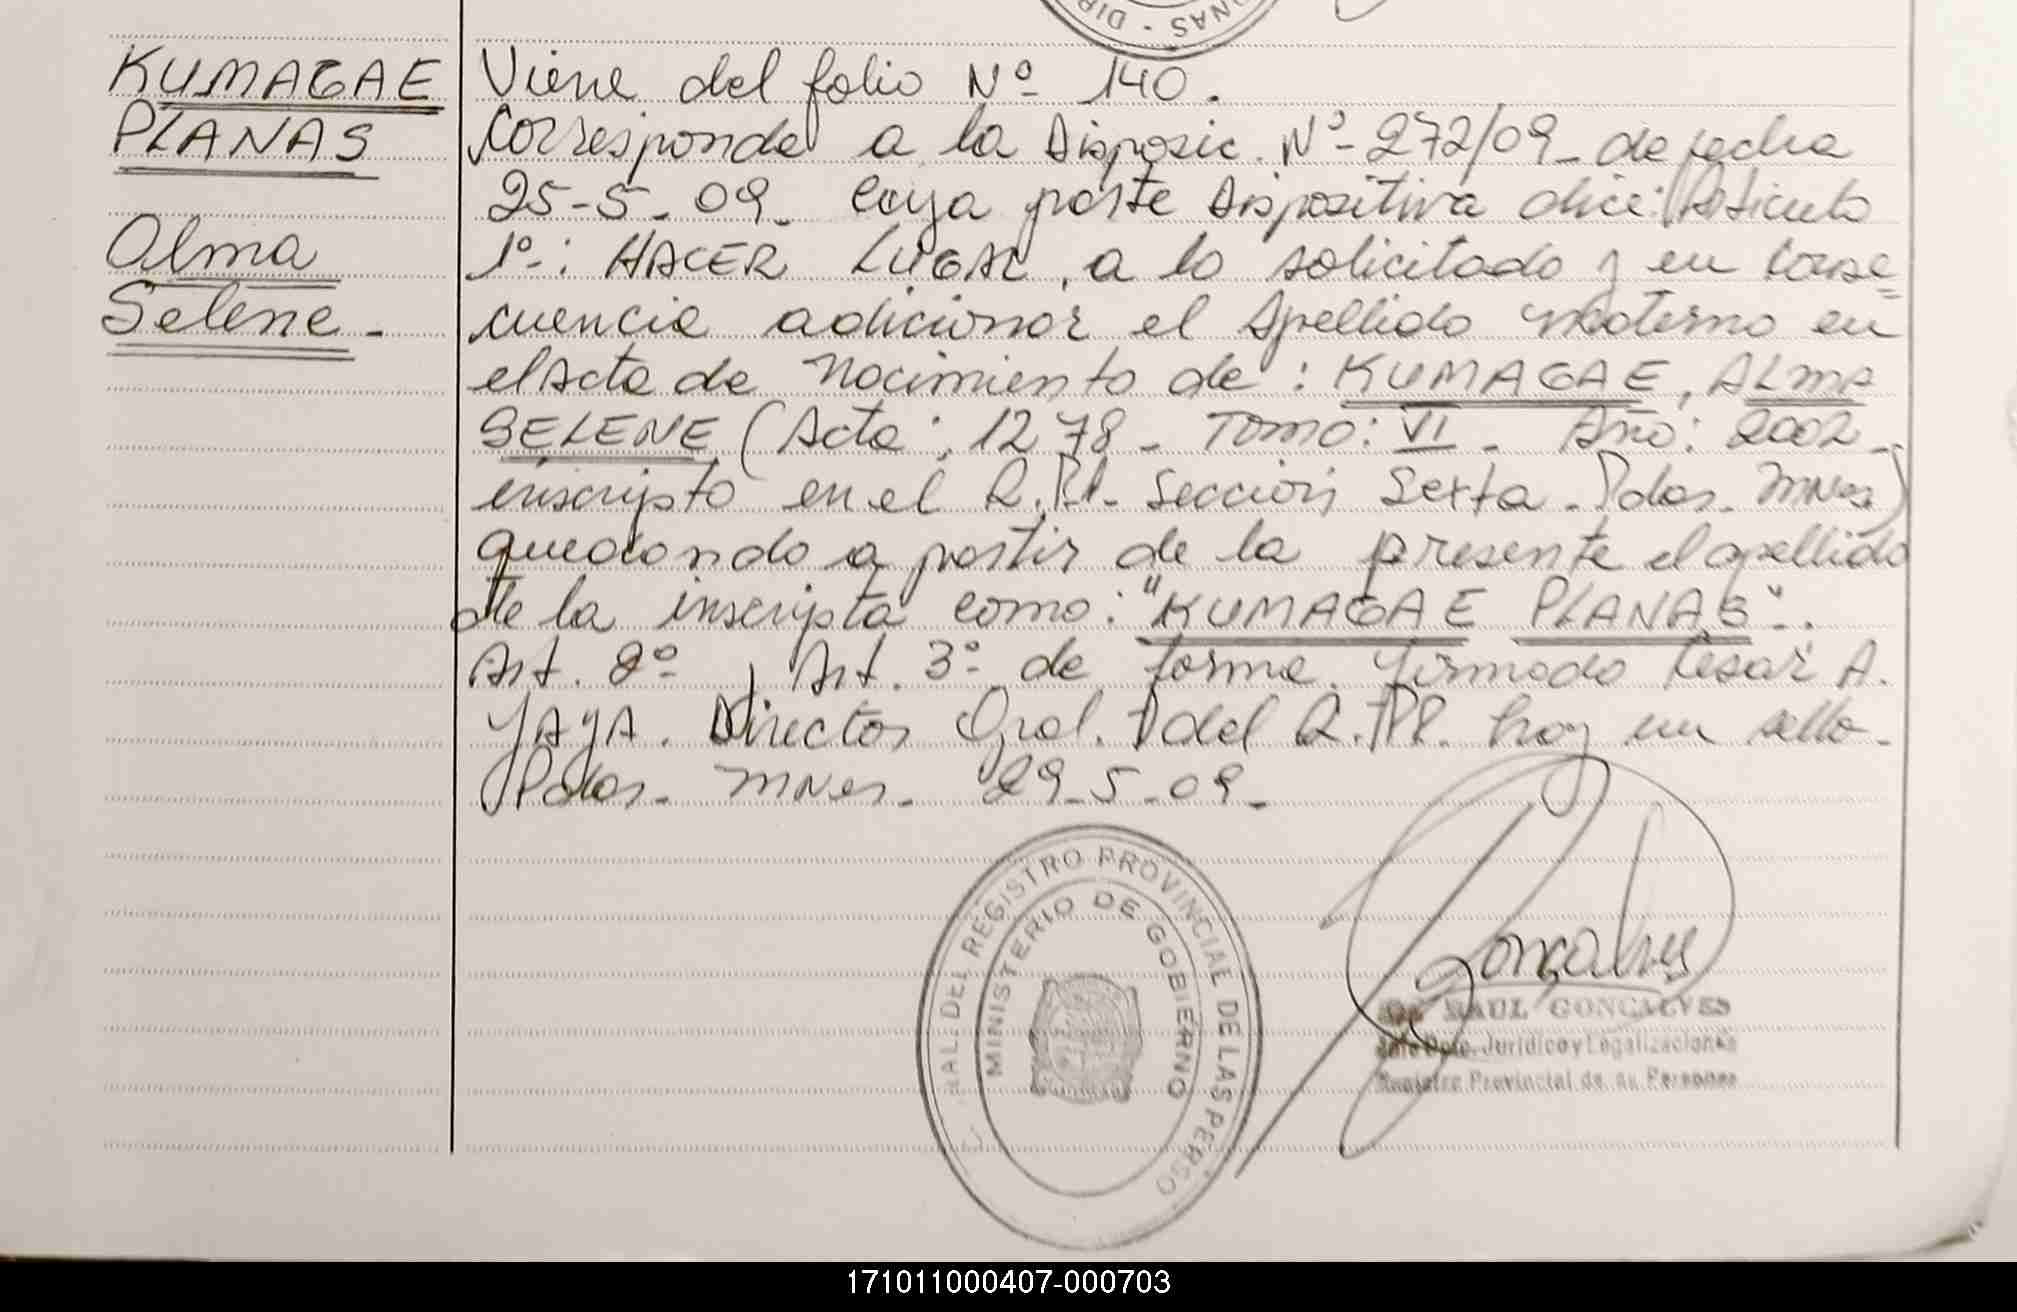 NAS - DIR
KUMAGAE
PLANAS
Alma
Selene -
Viene del folio Nº 140.
Corresponde a la Disposic. Nº 272/09 - de fecha
25-5-09 - Cuya parte Dispositiva dice: Articulo
1º-: HACER LUGAR, a lo solicitado y en conse
cuencia adicionar el Apellido Materno en
el Acta de Nacimiento de: KUMAGAE, ALMA
SELENE (Acta: 1278 - Tomo: VI - Año: 2002 -
inscripto en el R.P.P. Sección Sexta - Pdas. Mnes)
quedando a partir de la presente el apellido
de la inscripta como: "KUMAGAE PLANAS".
Art. 2º , Art. 3º de forma. Firmado Cesar A.
YAYA. Director Gral. del R.P.P. hay un sello -
Pdas. Mnes. 29-5-09 -
RAL DEL REGISTRO PROVINCIAL DE LAS PERSO
MINISTERIO DE GOBIERNO
Gonçalves
RAUL GONÇALVES
Jefe Dpto. Jurídico y Legalizaciones
Registro Provincial de las Personas
171011000407-000703